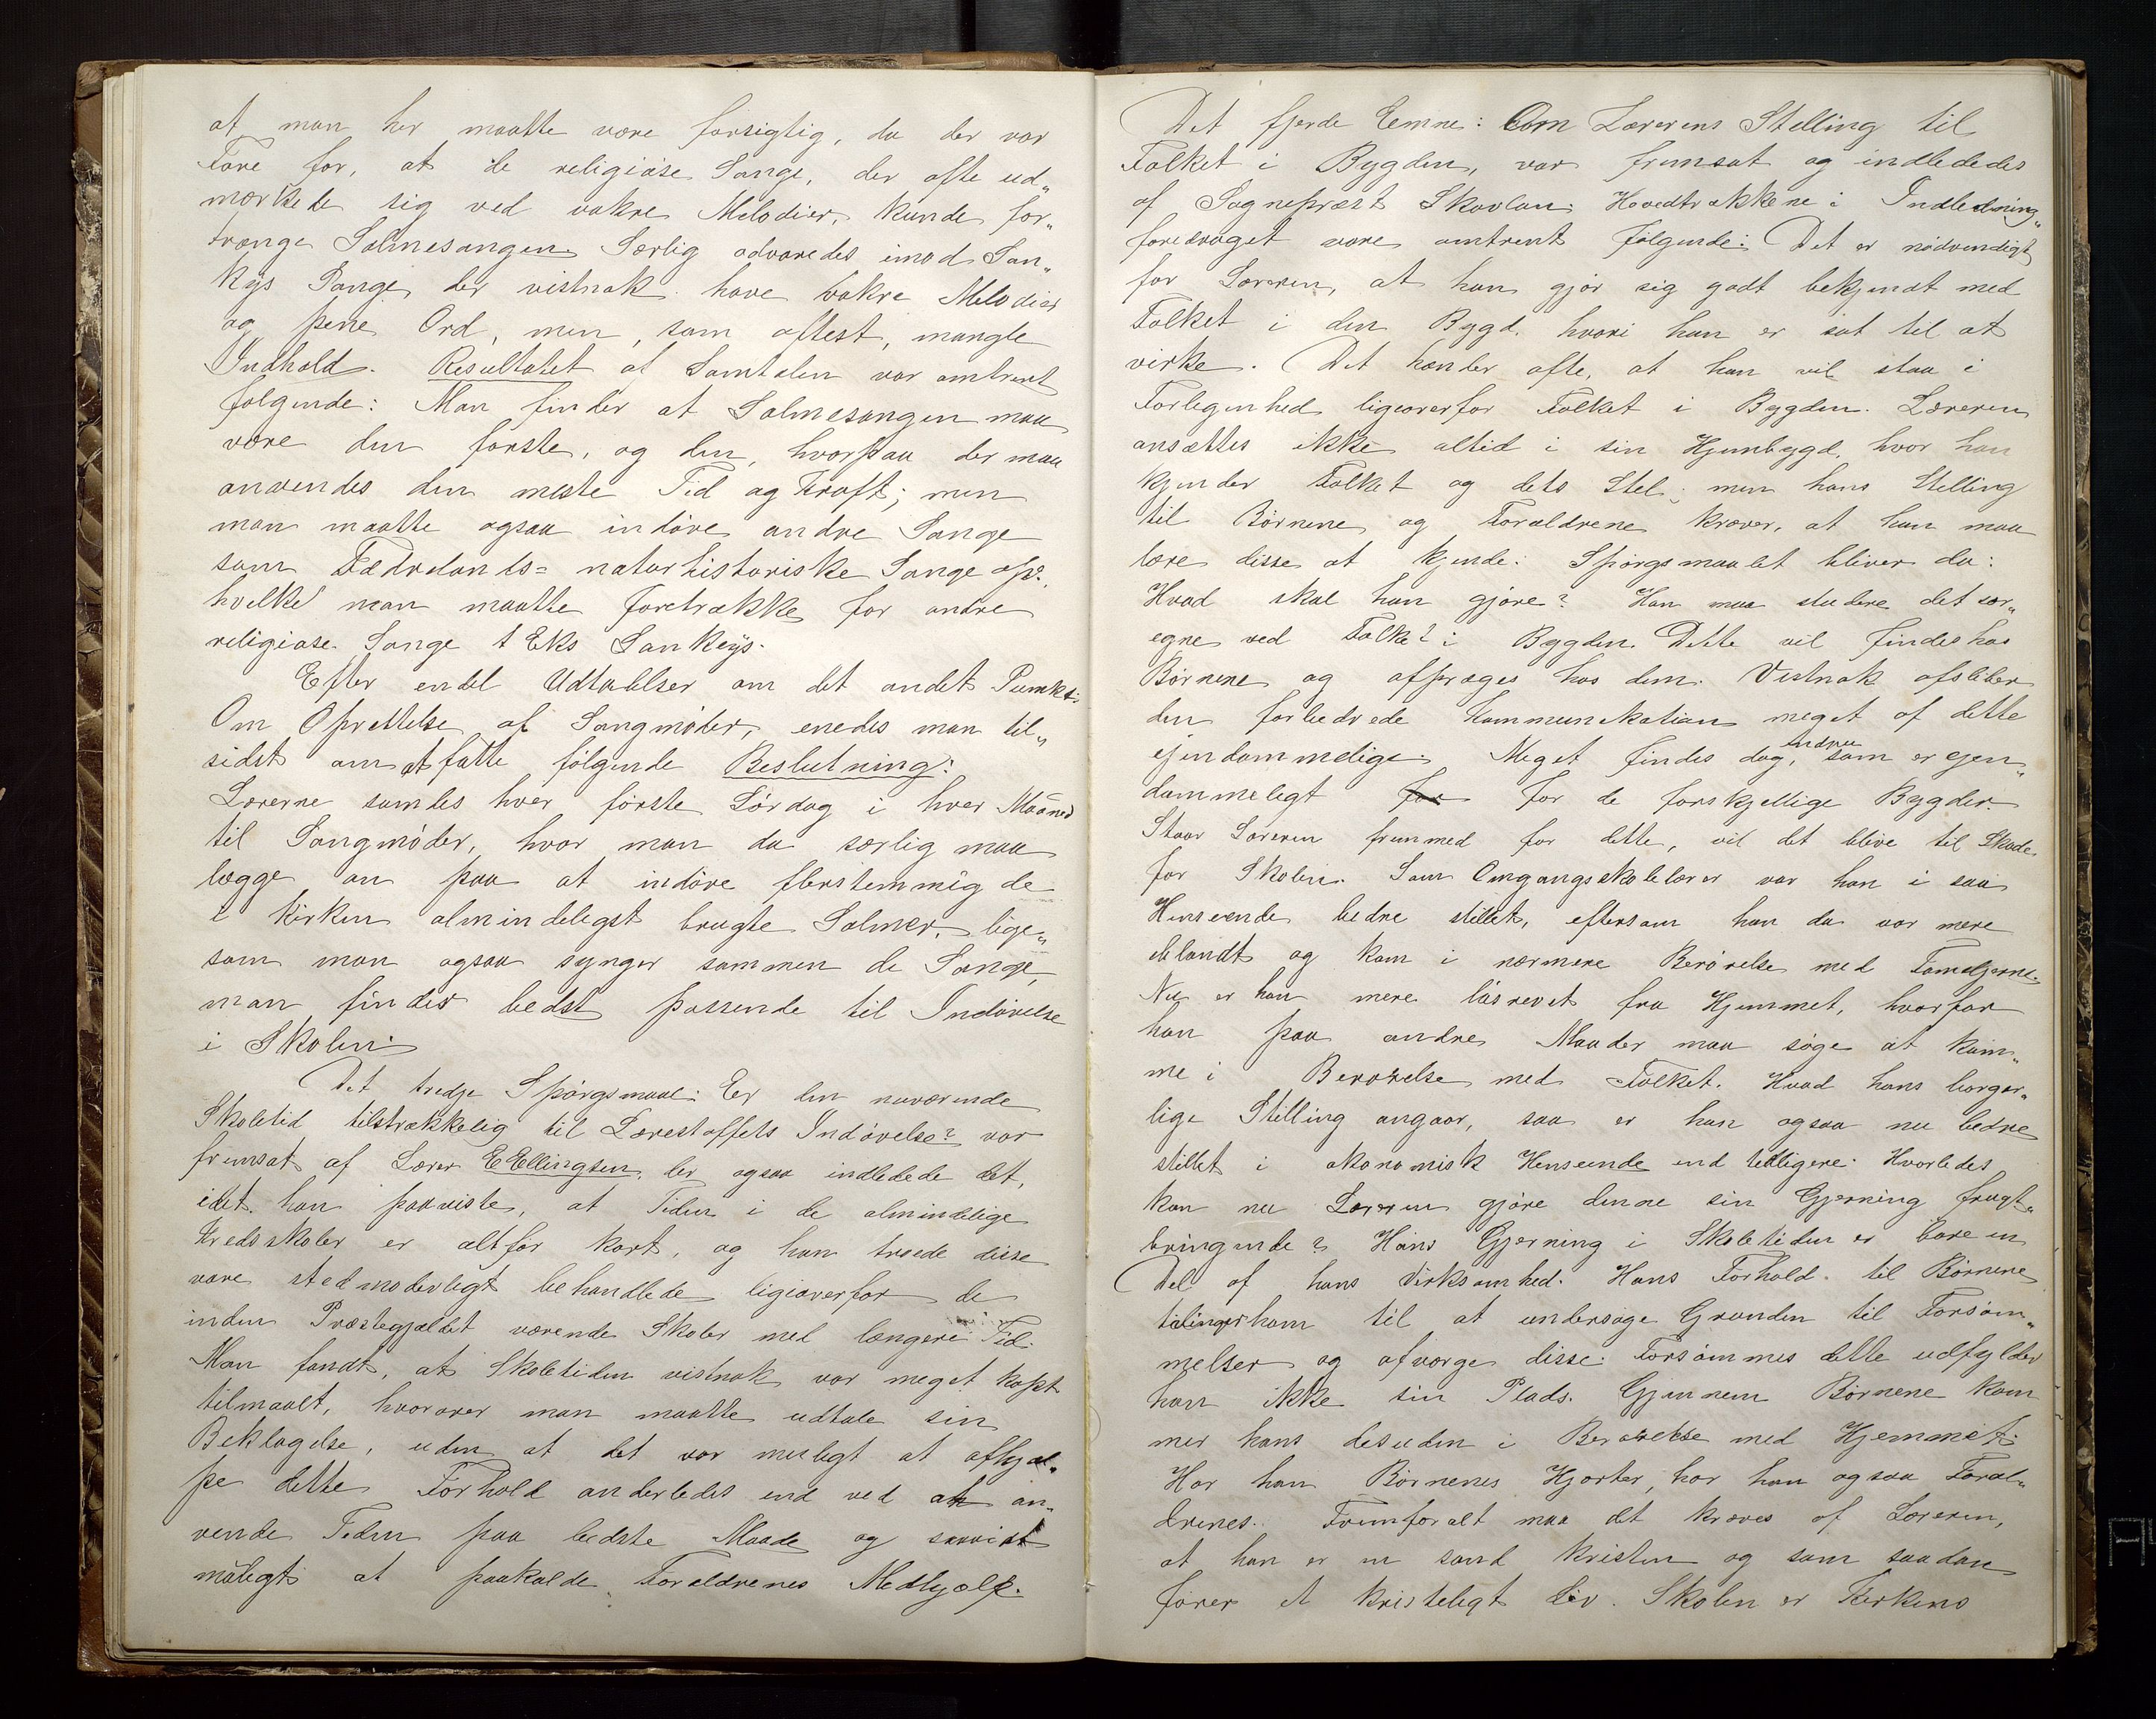 at man her maatte være forsigtig, da der var
Fare for, at de religiøse Sange, der ofte ud„
mærkede sig ved vakre Melodier, kunde for„
trænge Salmesangen. Særlig advaredes imod San„
keys Sange, der vistnok have vakre Melodier
og pene Ord, men, som oftest, mangle
Indhold. Resultatet af Samtalen var omtrent
følgende: Man finder at Salmesangen maa
være den første, og den, hvorpaa der maa
anvendes den meste Tid og Kraft; men
man maatte ogsaa indøve andre Sange
som Fædrelands= naturhistoriske Sange osv.
hvilke man maatte foretrække for andre
religiøse Sange t Eks Sankeys.
Efter endel Udtalelser om det andet Punkt:
Om Oprettelse af Sangmøder, enedes man til„
sidst om at fatte følgende Beslutning:
Lærerne samles hver første Lørdag i hver Maaned
til Sangmøder, hvor man da særlig maa
lægge an paa at indøve flerstemmig de
i Kirken almindeligst brugte Salmer, lige„
som man ogsaa synger sammen de Sange,
man finder bedst passende til Indøvelse
i Skolen.
Det tredje Spørgsmaal: Er den nuværende
Skoletid tilstrækkelig til Lærestoffets Indøvelse? var
fremsat af Lærer E Ellingsen, der ogsaa indledede det,
idet han paaviste, at Tiden i de almindelige
Kredsskoler er altfor kort, og han troede disse
vare stedmoderligt behandlede ligeoverfor de
inden Præstegjældet værende Skoler med længere Tid.
Man fandt, at Skoletiden vistnok var meget knapt
tilmaalt, hvorover man maatte udtale sin
Beklagelse, uden at det var muligt at afhjæl„
pe dette Forhold anderledes end ved at an„
vende Tiden paa bedste Maade og saavidt
muligt at paakalde Forældrenes Medhjælp.
Det fjerde Eemne: Om Lærerens Stelling til
Folket i Bygden, var fremsat og indlededes
af Sogneprest Skavlan. Hovedtrækkene i Indlednings„
foredraget vare omtrent følgende: Det er nødvendigt
for Læreren, at han gjør sig godt bekjendt med
Folket i den Bygd, hvori han er sat til at
virke. Det hænder ofte, at han vil staa i
Forlegenhed ligeoverfor Folket i Bygden. Læreren
ansættes ikke altid i sin Hjembygd, hvor han
kjender Folket og dets Stel; men hans Stelling
til Børnene og Forældrene kræver, at han maa
lære disse at kjende. Spørgsmaalet bliver da:
Hvad skal han gjøre? Han maa studere det sær„
egne ved Folket i Bygden. Dette vil findes hos
Børnene og afpræges hos dem. Vistnok afsliber
den forbedrede Kommunikation meget af dette
ejendommelige. Meget findes dog, endnu som er ejen„
dommeligt for for de forskjellige Bygder.
Staar Læreren fremmed for dette, vil det blive til Skade
for Skolen. Som Omgangsskolelærer var han i saa
Henseende bedre stillet, eftersom han da var mere
iblandt og kom i nærmere Berørelse med Familjerne.
Nu er han mere løsrevet fra Hjemmet, hvorfor
han paa andre Maader maa søge at kom„
me i Berørelse med Folket. Hvad hans borger„
lige Stilling angaar, saa er han ogsaa nu bedre
stillet i økonomisk Henseende end tidligere. Hvorledes
kan nu Læreren gjøre denne sin Gjerning frugt„
bringende? Hans Gjerning i Skoletiden er bare en
Del af hans Virksomhed. Hans Forhold til Børnene
tvinger ham til at undersøge Grunden til Forsøm„
melser og afværge disse. Forsømmes dette udfylder
han ikke sin Plads. Gjennem Børnene kom
mer hans desuden i Berørelse med Hjemmet.
Har han Børnenes Hjerter, har han ogsaa Foræl„
drenes. Fremforalt maa det kræves af Læreren,
at han er en sand Kristen og som saadan
fører et kristeligt Liv. Skolen er Kirkens